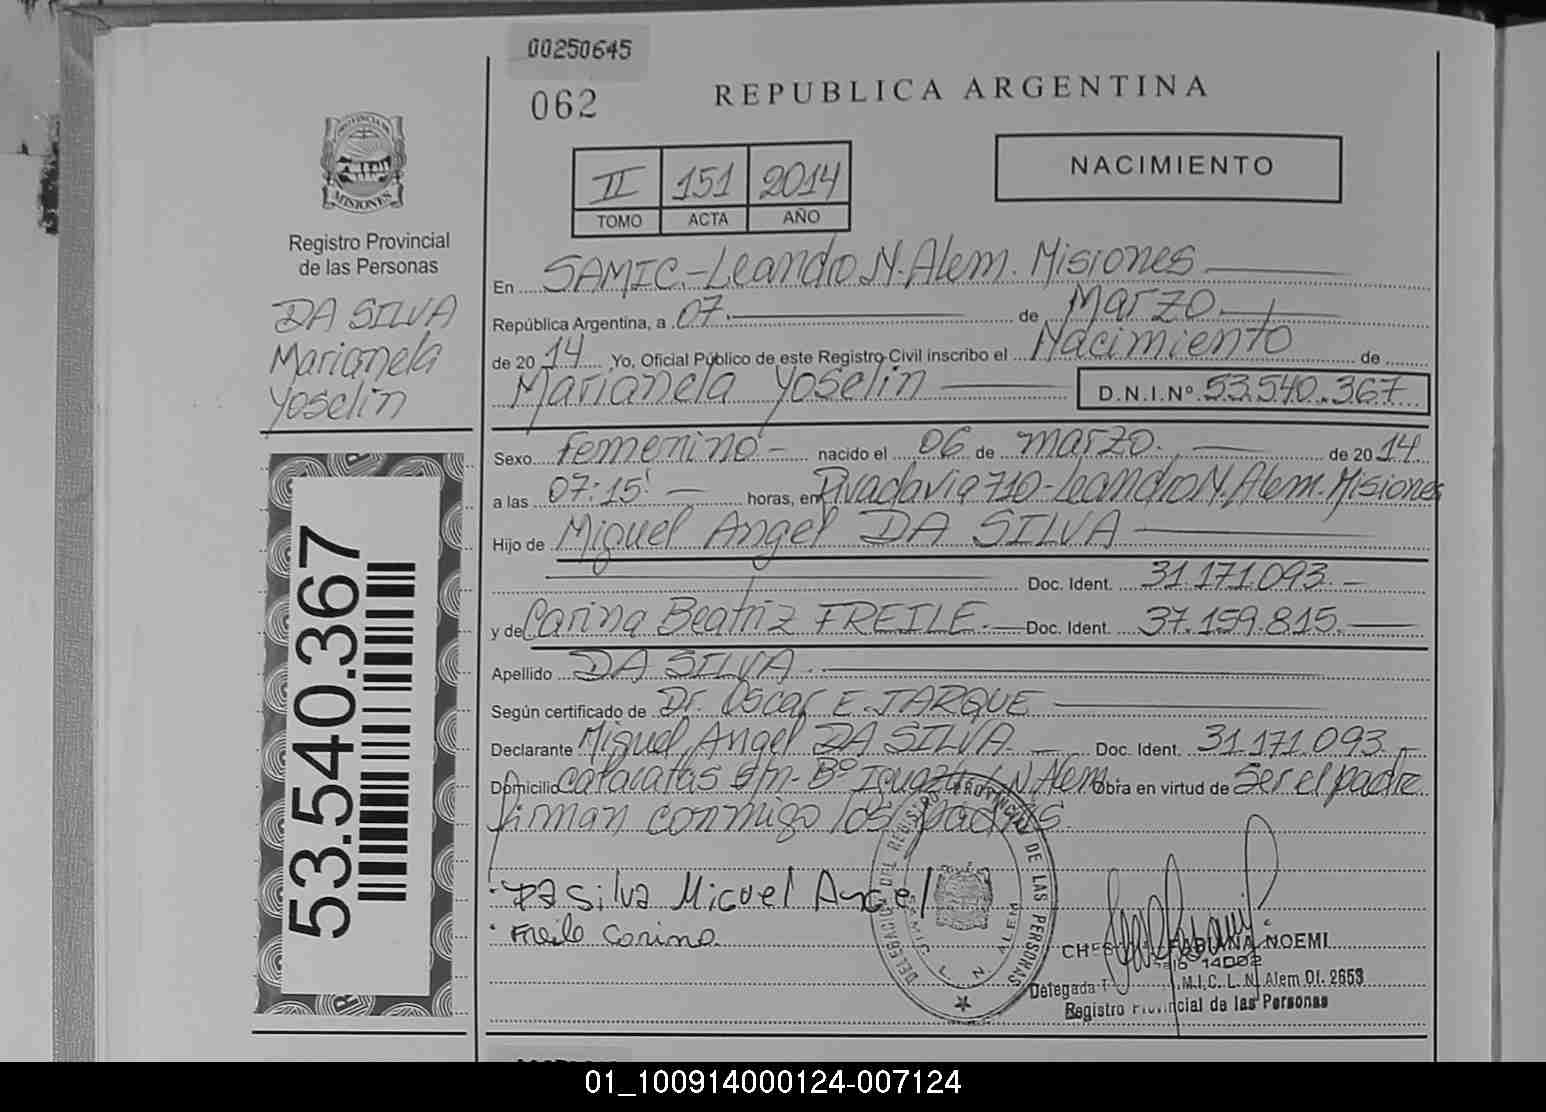 00250645
062
REPUBLICA ARGENTINA
PROVINCIA DE
MISIONES
II 151 2014
TOMO ACTA AÑO
NACIMIENTO
Registro Provincial
de las Personas
DA SILVA
Marianela
Yoselin
En SAMIC.-Leandro N. Alem. Misiones
República Argentina, a 07. de Marzo
de 20 14 ,Yo, Oficial Público de este Registro Civil inscribo el Nacimiento de
Marianela Yoselin D.N.I.Nº 53.540.367
Sexo Femenino - nacido el 06 de marzo. de 20 14
a las 07:15' - horas, en Rivadavia 710-Leandro N. Alem. Misiones
Hijo de Miguel Angel DA SILVA
Doc. Ident. 31.171.093. -
y de Carina Beatriz FREILE.- Doc. Ident. 37.159.815.
Apellido DA SILVA.
Según certificado de Dr. Oscar E. JARQUE
Declarante Miguel Angel DA SILVA Doc. Ident. 31.171.093. -
Domicilio cataratas s/n- Bº Iguazú L.N. Alem Obra en virtud de Ser el padre.
Firman conmigo los padres.
53.540.367
Da Silva Miguel Angel
Freile Carina
DELEGACION DEL REGISTRO PROVINCIAL DE LAS PERSONAS
SAMIC L. N. ALEM
FABIANA NOEMI
14002
Delegada M.I.C. L. N. Alem Of. 2653
Registro Provincial de las Personas
01_100914000124-007124